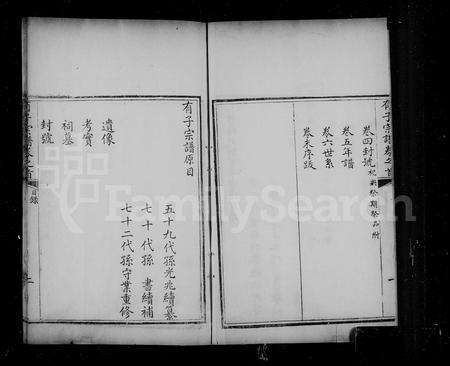 有子宗譜卷之首
卷四封號 祀典祭期祭品附
卷五年譜
卷六世系
卷末序跋
一
有子宗譜原目
五十九代孫光兆續纂
七十代孫 書續補
七十二代孫守業重修
遺像
考實
祠墓
封號
有子宗譜卷之首
目錄
二
FamilySearch